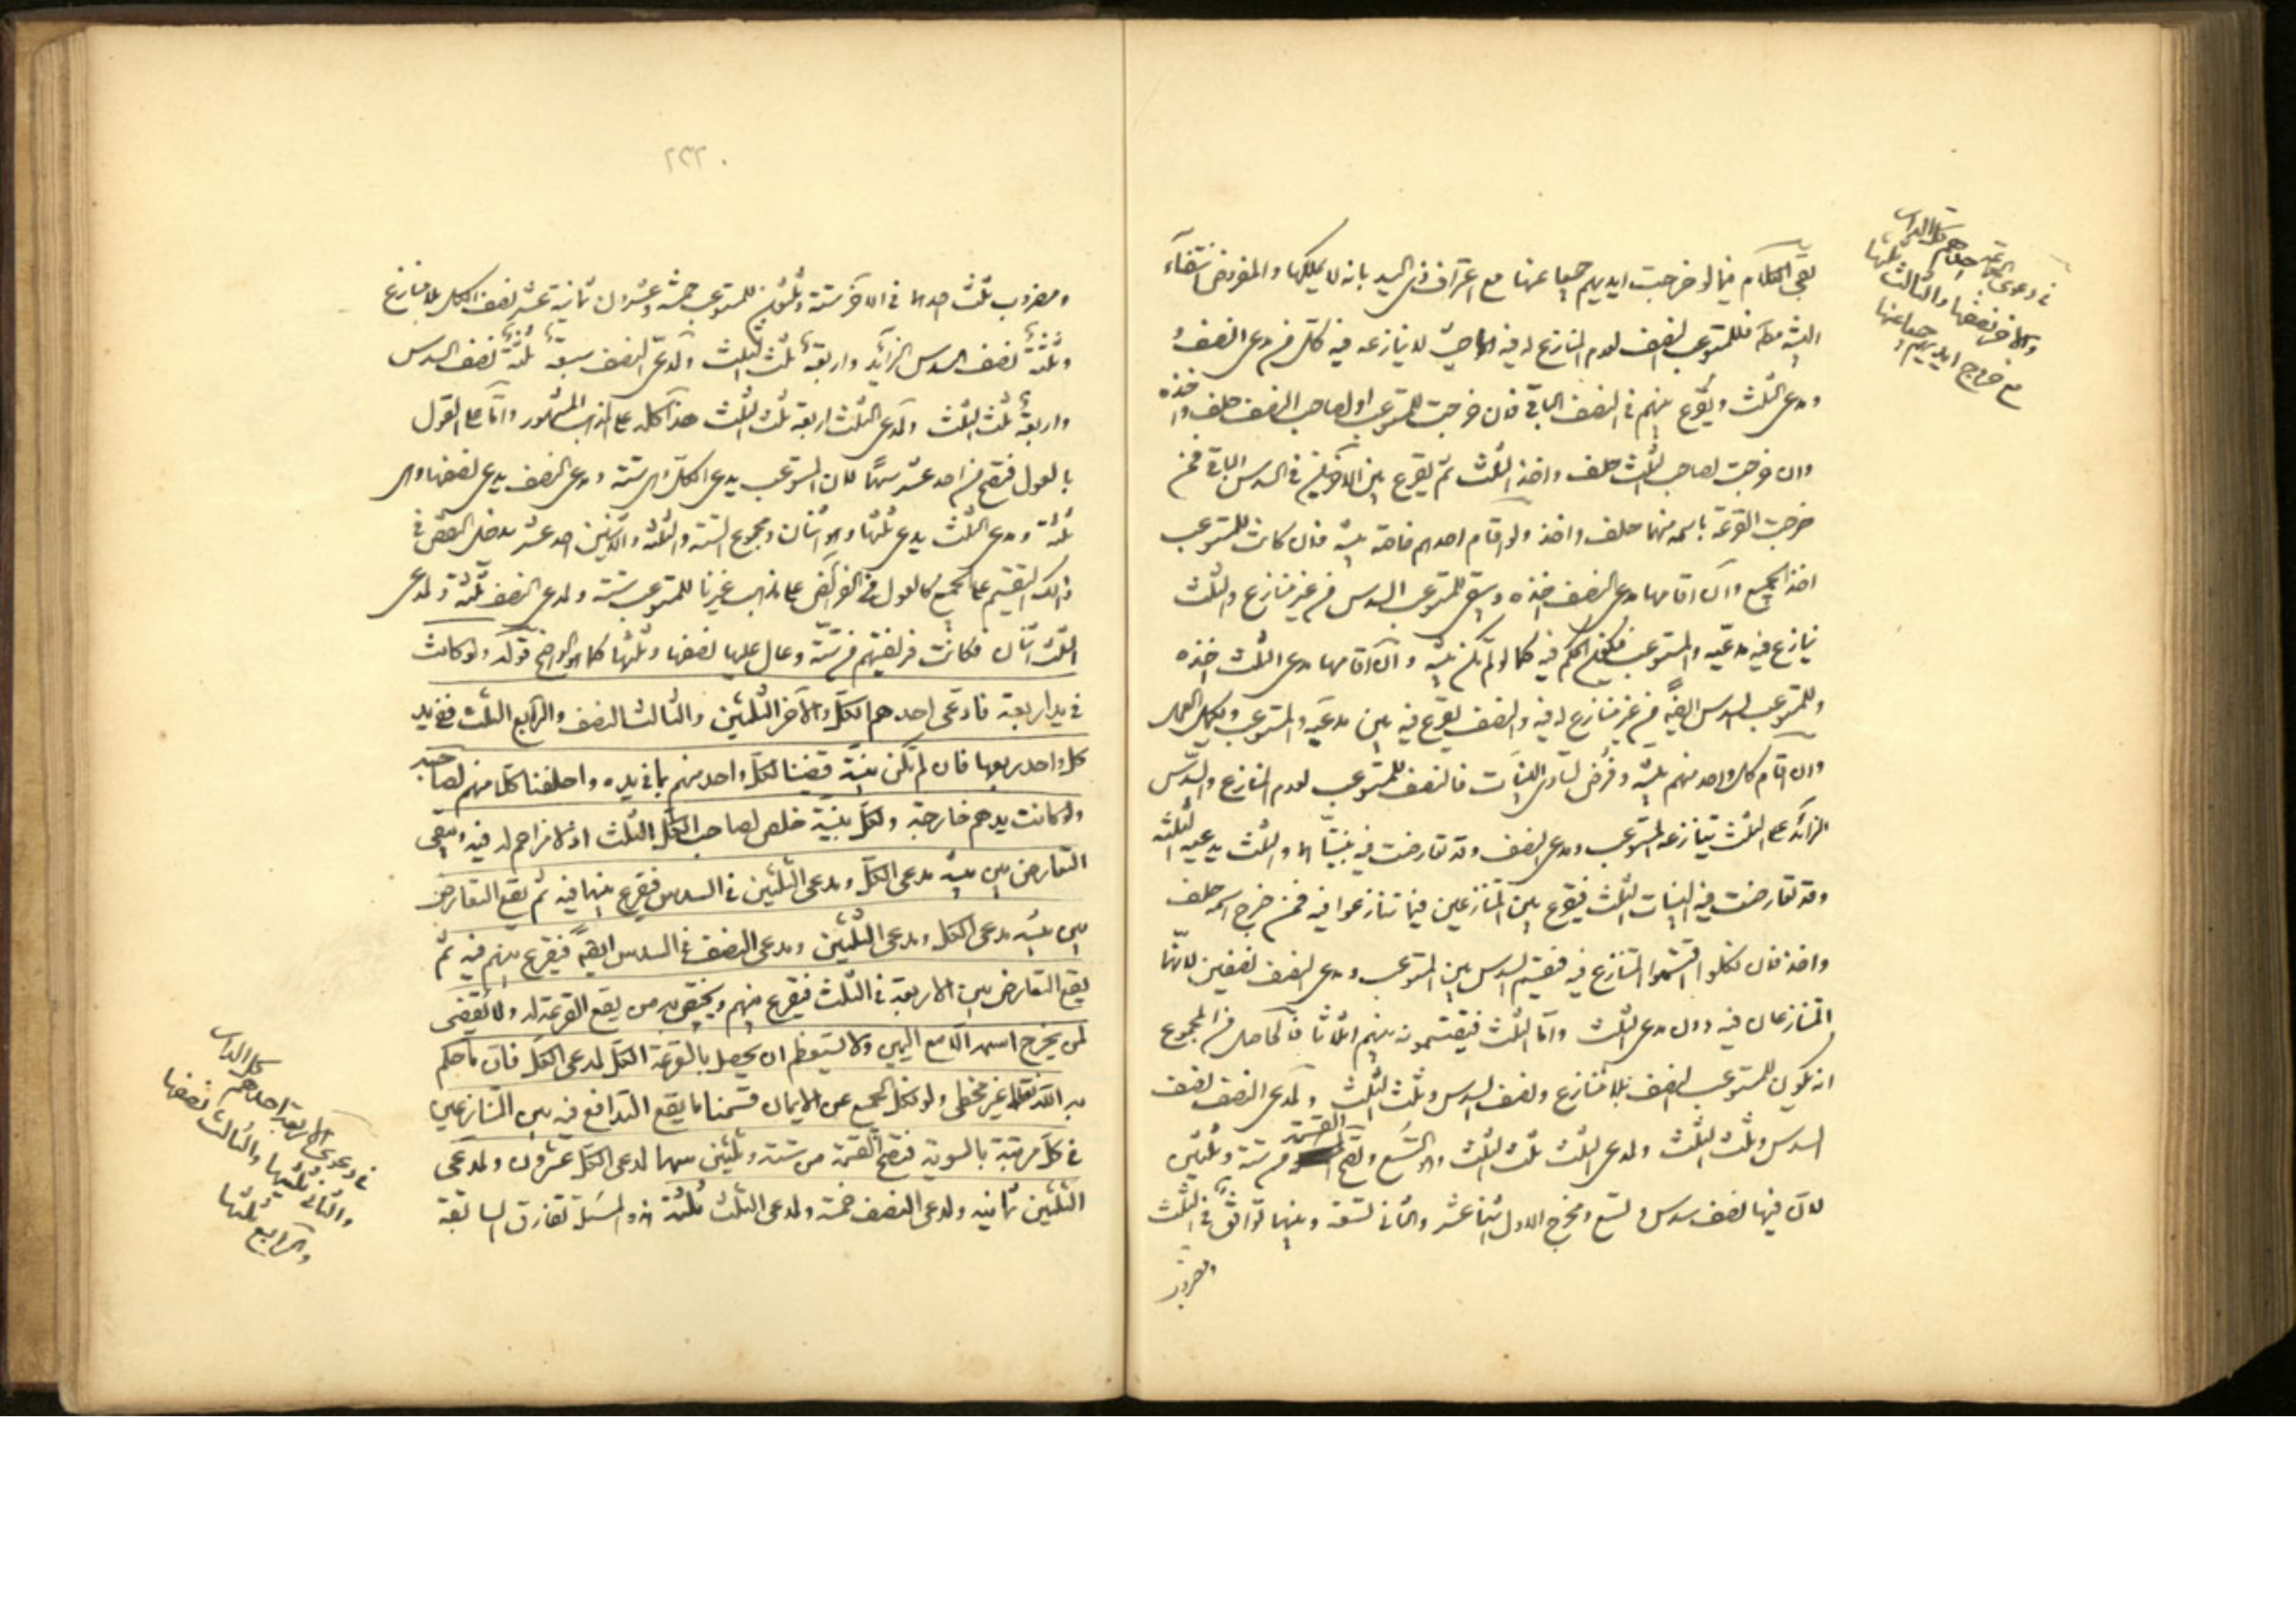 بقى الكلام فيما لو خرجت ايديهم جميعا عنها مع اعتراف ذى اليد بانه لا يملكها والمفروض انتفاء
البينة مط فللمستوعب النصف لعدم المنازع له فيه اذ لا ينازعه فيه كل من مدعى النصف
ومدعى الثلث ويقرع بينهم فى النصف الباقى فان خرجت للمستوعب او لصاحب النصف حلف واخذه
وان خرجت لصاحب الثلث حلف واخذ الثلث ثم يقرع بين الاخرين فى السدس الباقى فمن
خرجت القرعة باسمه منهما حلف واخذ ولو اقام احدهم خاصة بينة فان كانت للمستوعب
اخذ الجميع وان اقامها مدعى النصف اخذه وبقى للمستوعب السدس من غير منازع والثلث
ينازع فيه مدعيه والمستوعب فيكون الحكم فيه كما لو لم تكن بينة وان اقامها مدعى الثلث اخذه
وللمستوعب السدس ايضا من غير منازع له فيه والنصف يقرع فيه بين مدعيه والمستوعب ويكمل العمل
وان اقام كل واحد منهم بينة وفرض تساوى البينات فالنصف للمستوعب لعدم المنازع والسدس
الزائد على الثلث يتنازعه المستوعب ومدعى النصف وقد تعارضت فيه بينتاهما والثلث يدعيه الثلثة
وقد تعارضت فيه البينات الثلث فيقرع بين المتنازعين فيما تنازعوا فيه فمن خرج اسمه حلف
واخذ فان نكلوا اقتسموا المتنازع فيه فيقسم السدس بين المستوعب ومدعى النصف نصفين لانهما
المتنازعان فيه دون مدعى الثلث واما الثلث فيقتسمونه بينهم اثلاثا فالحاصل من المجموع
انه يكون للمستوعب النصف بلا منازع ونصف السدس وثلث الثلث ولمدعى النصف نصف
السدس وثلث الثلث ولمدعى الثلث ثلث الثلث وهو التسع وتصح القسمة من ستة وثلثين
لان فيها نصف سدس وتسع ومخرج الاول اثنا عشر والثانى تسعة وبينهما توافق فى الثلث
ومضروب
فى دعوى الثلثة احدهم كل الدار
والاخر نصفها والثالث ثلثها
مع خروج ايديهم جميعا عنها
٢٣٢
ومضروب ثلث احدهما فى الاخر ستة وثلثون للمستوعب خمسة وعشرون ثمانية عشر نصف الكل بلا منازع
وثلثة نصف السدس الزائد واربعة ثلث الثلث ولمدعى النصف سبعة ثلثة نصف السدس
واربعة ثلث الثلث ولمدعى الثلث اربعة ثلث الثلث هذا كله على المذهب المشهور واما على القول
بالعول فتصح من احد عشر سهما لان المستوعب يدعى الكل وهى ستة ومدعى النصف يدعى نصفها وهى
ثلثة ومدعى الثلث يدعى ثلثها وهو اثنان ومجموع الستة والثلثة والاثنين احد عشر يدخل النقص فى
ذلك التقسيم على الجميع كالعول فى الفرائض على مذهب غيرنا للمستوعب ستة ولمدعى النصف ثلثة ولمدعى
الثلث اثنان فكانت فريضتهم من ستة وعال عليها نصفها وثلثها كما هو الواضح قوله ولو كانت
فى يد اربعة فادعى احدهم الكل والاخر الثلثين والثالث النصف والرابع الثلث ففى يد
كل واحد ربعها فان لم تكن بينة قضينا لكل واحد منهم بما فى يده واحلفنا كلا منهم لصاحبه
ولو كانت يدهم خارجة ولكل بينة خلص لصاحب الكل الثلث اذ لا مزاحم له فيه ويبقى
التعارض بين بينة مدعى الكل ومدعى الثلثين فى السدس فيقرع بينهما فيه ثم يقع التعارض
بين بينة مدعى الكل ومدعى الثلثين ومدعى النصف فى السدس ايضا فيقرع بينهم فيه ثم
يقع التعارض بين الاربعة فى الثلث فيقرع بينهم ويختص به من يقع القرعة له ولا يقضى
لمن يخرج اسمه الا مع اليمين ولا يستعظم ان يحصل بالقرعة الكل لمدعى الكل فان ما حكم
به الله تعالى غير مخطى ولو نكل الجميع عن الايمان قسمنا ما يقع التدافع فيه بين المتنازعين
فى كل مرتبة بالسوية فتصح القسمة من ستة وثلثين سهما لمدعى الكل عشرون ولمدعى
الثلثين ثمانية ولمدعى النصف خمسة ولمدعى الثلث ثلثة هذه المسئلة تفارق السابقة
فى دعوى الاربعة احدهم كل الدار
والثانى ثلثيها والثالث نصفها
والرابع ثلثها